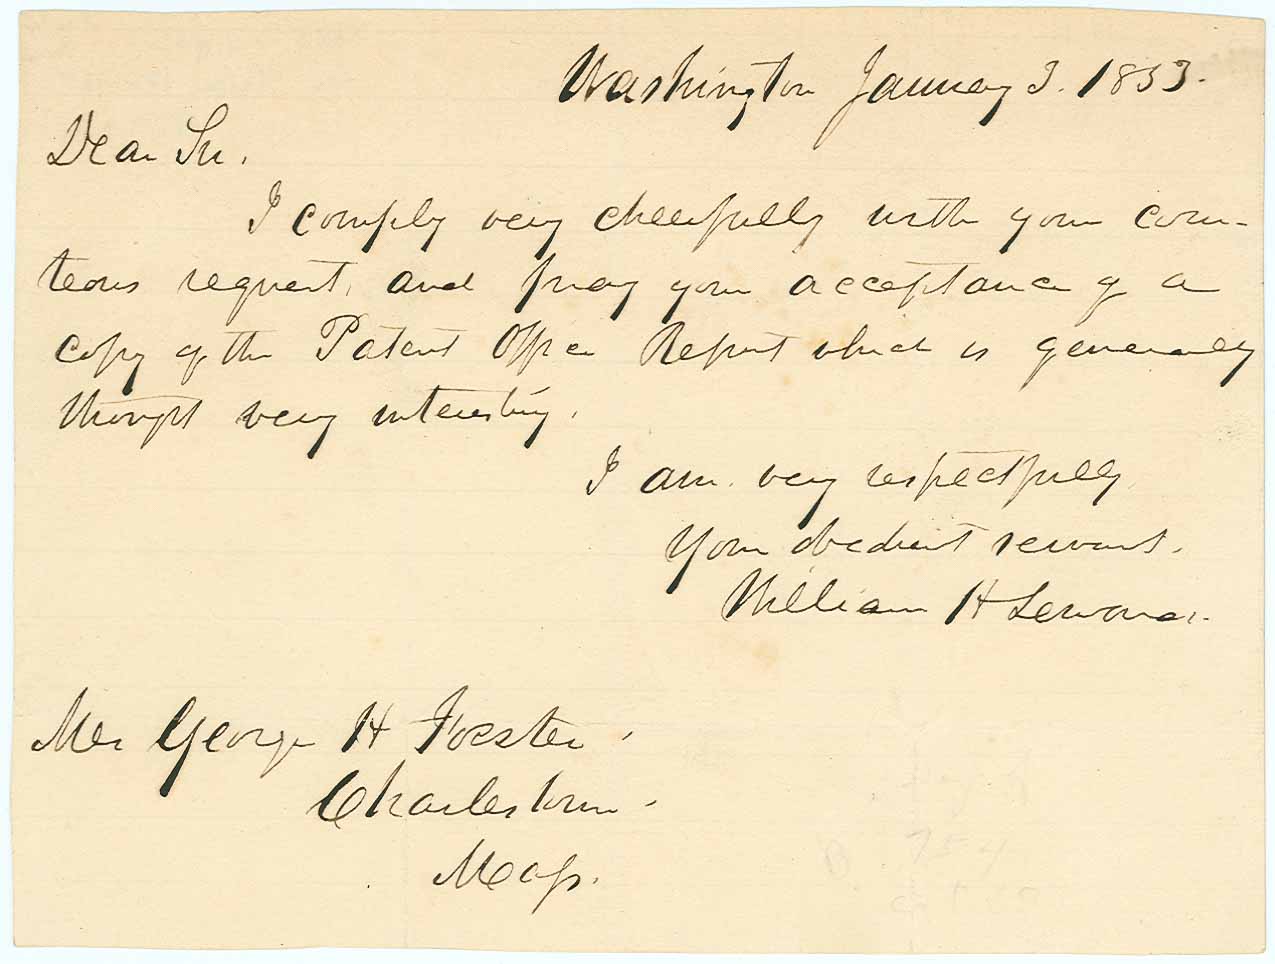 Washington January 3. 1853.
Dear Sir.
I comply very cheerfully with your cour-
teous request, and pray your acceptance of a
copy of the Patent Office Report which is generally
thought very interesting.
I am. very respectfully
Your obedient servant.
William H Seward.
Mr George H Foster.
Charlestown.
Mass.
B 754